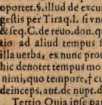 oportet. §. illud de excu
gestis per Tiraq. l. si vn
& seq. C. de reuo. don. q
tio ad aliud tempus
illa uerba, ex nunc pro
hic denotet tempus mo
nimi, quo tempore, f. c
deinceps, aut. de nupt. d
Tertio Quia inspect